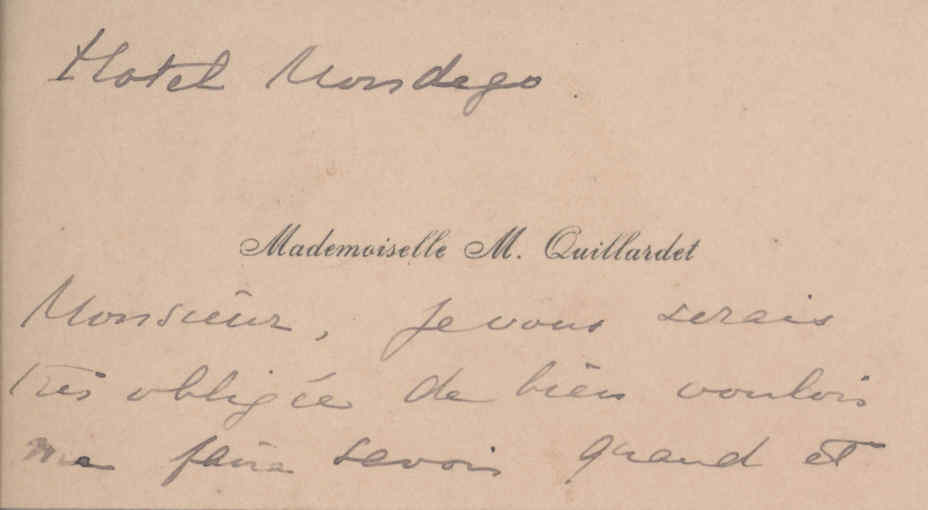 Hotel Mondego
Mademoiselle M. Quillardet
Monsieur, je vous serais
très obligée de bien vouloir
me faire savoir quand et